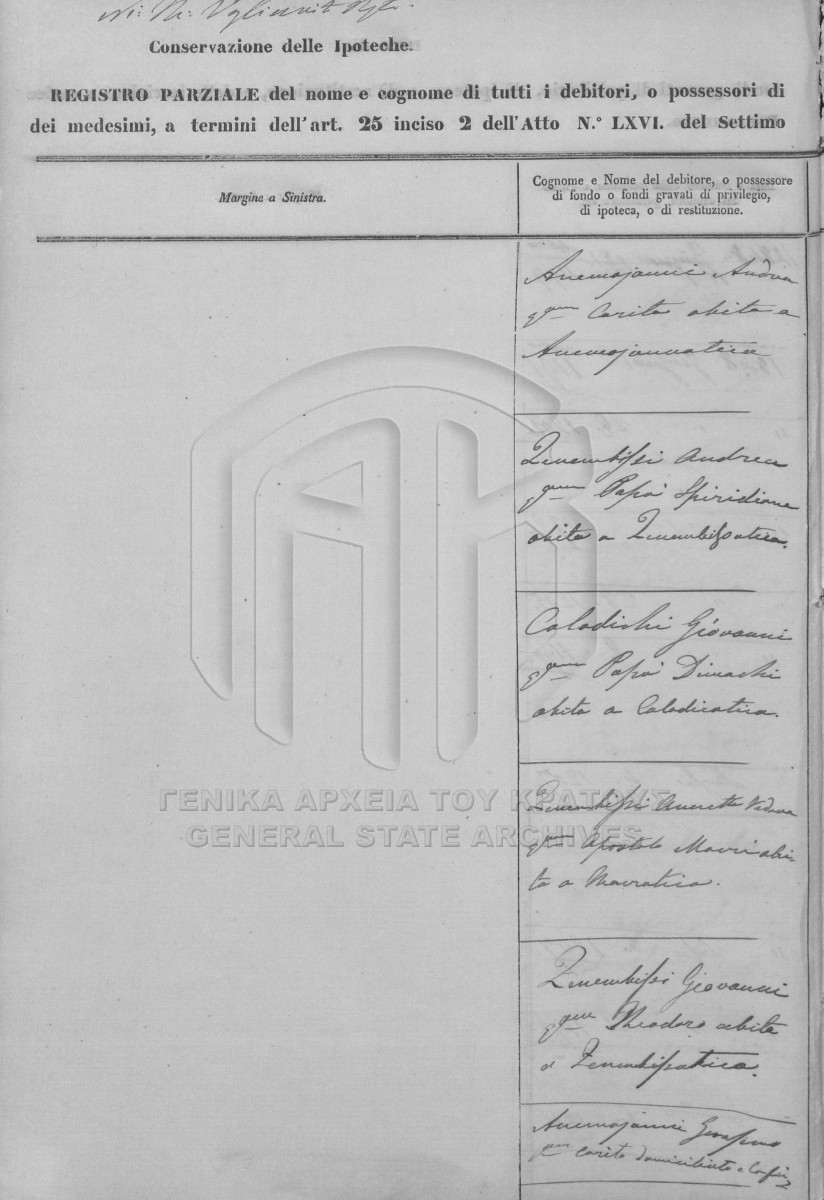 Conservazione delle Ipoteche.
REGISTRO PARZIALE del nome e cognome di tutti i debitori, o possessori di
dei medesimi, a termini dell'art. 25 inciso 2 dell'Atto N.° LXVI. del Settimo
Margine a Sinistra.
Cognome e Nome del debitore, o possessore
di fondo o fondi gravati di privilegio,
di ipoteca, o di restituzione.
Anemojanni Andrea
qm Carito abita a
Anemojannatica
Zenembissi Andrea
qm Papà Spiridione
abita a Zenembissatica.
Calodichi Giovanni
qm Papà Dimachi
abita a Calodicatica.
Zenembissi Vedova
qm Apostolo Mavri abi-
ta a Mavratica.
Zenembissi Giovanni
qm Theodoro abita
a Zenembissatica.
Anemojanni
qm Carito a Corfù
ΓΕΝΙΚΑ ΑΡΧΕΙΑ ΤΟΥ ΚΡΑΤΟΥΣ
GENERAL STATE ARCHIVES